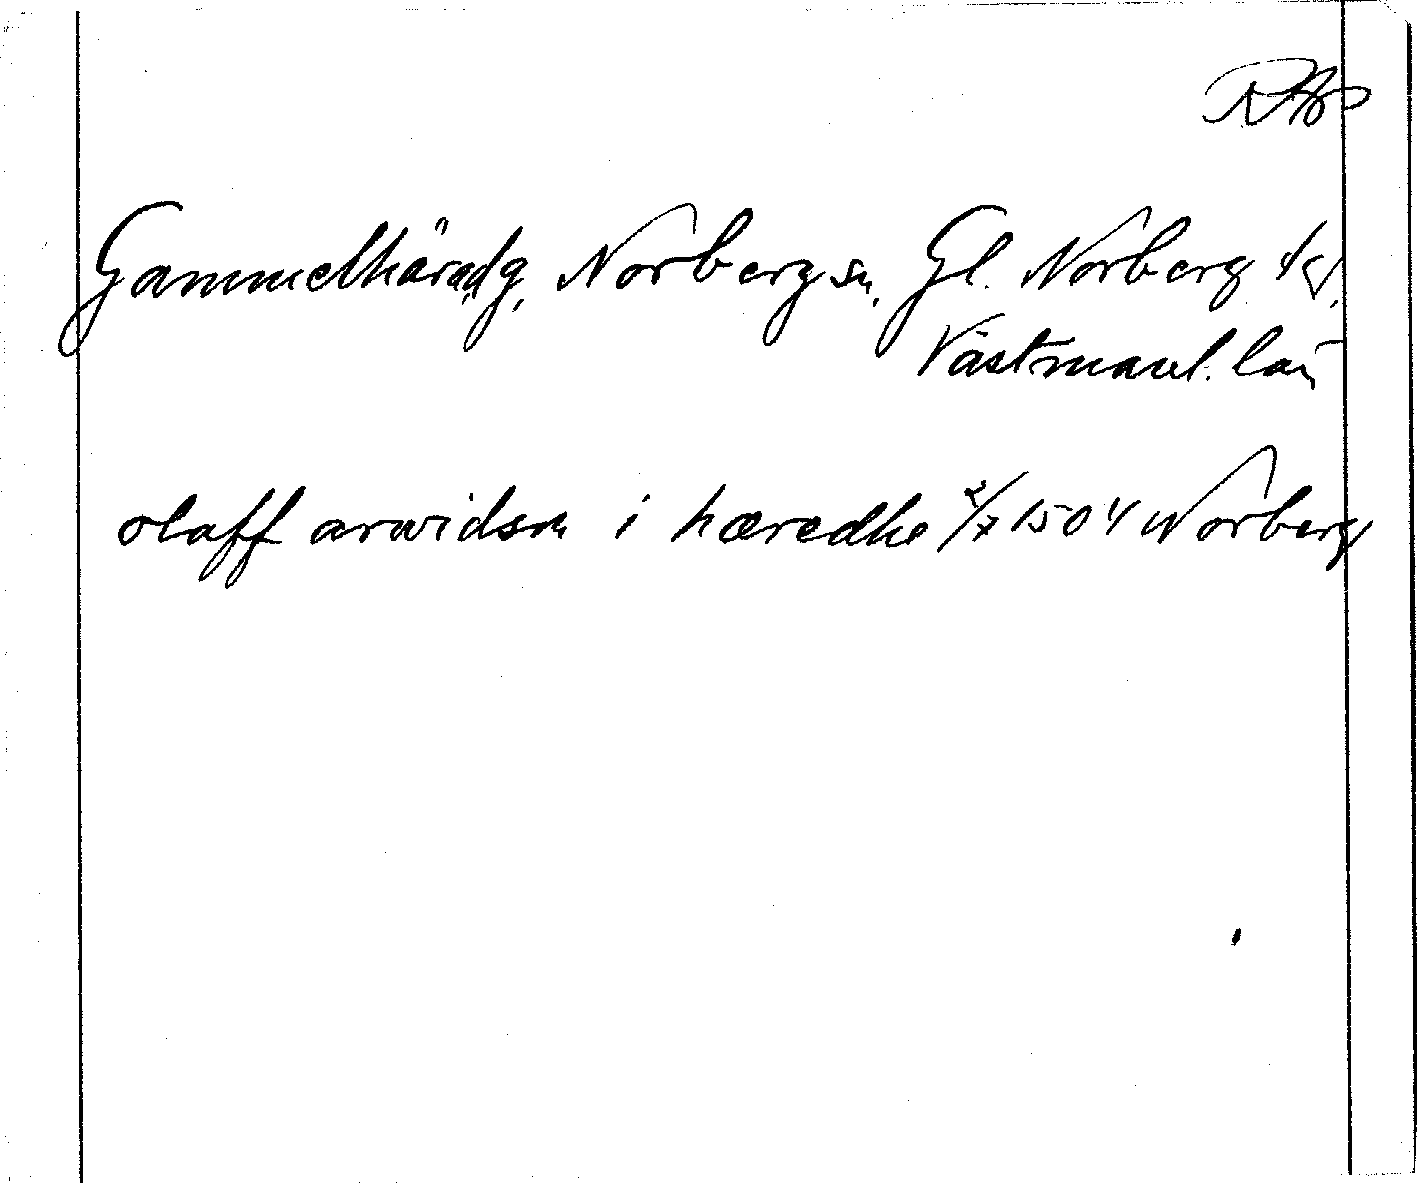 Gammelhäradg, Norberg sn, Gl. Norberg
Västmanl. län
olaff arvidsn i hæredhe 2/7 1504 Norberg